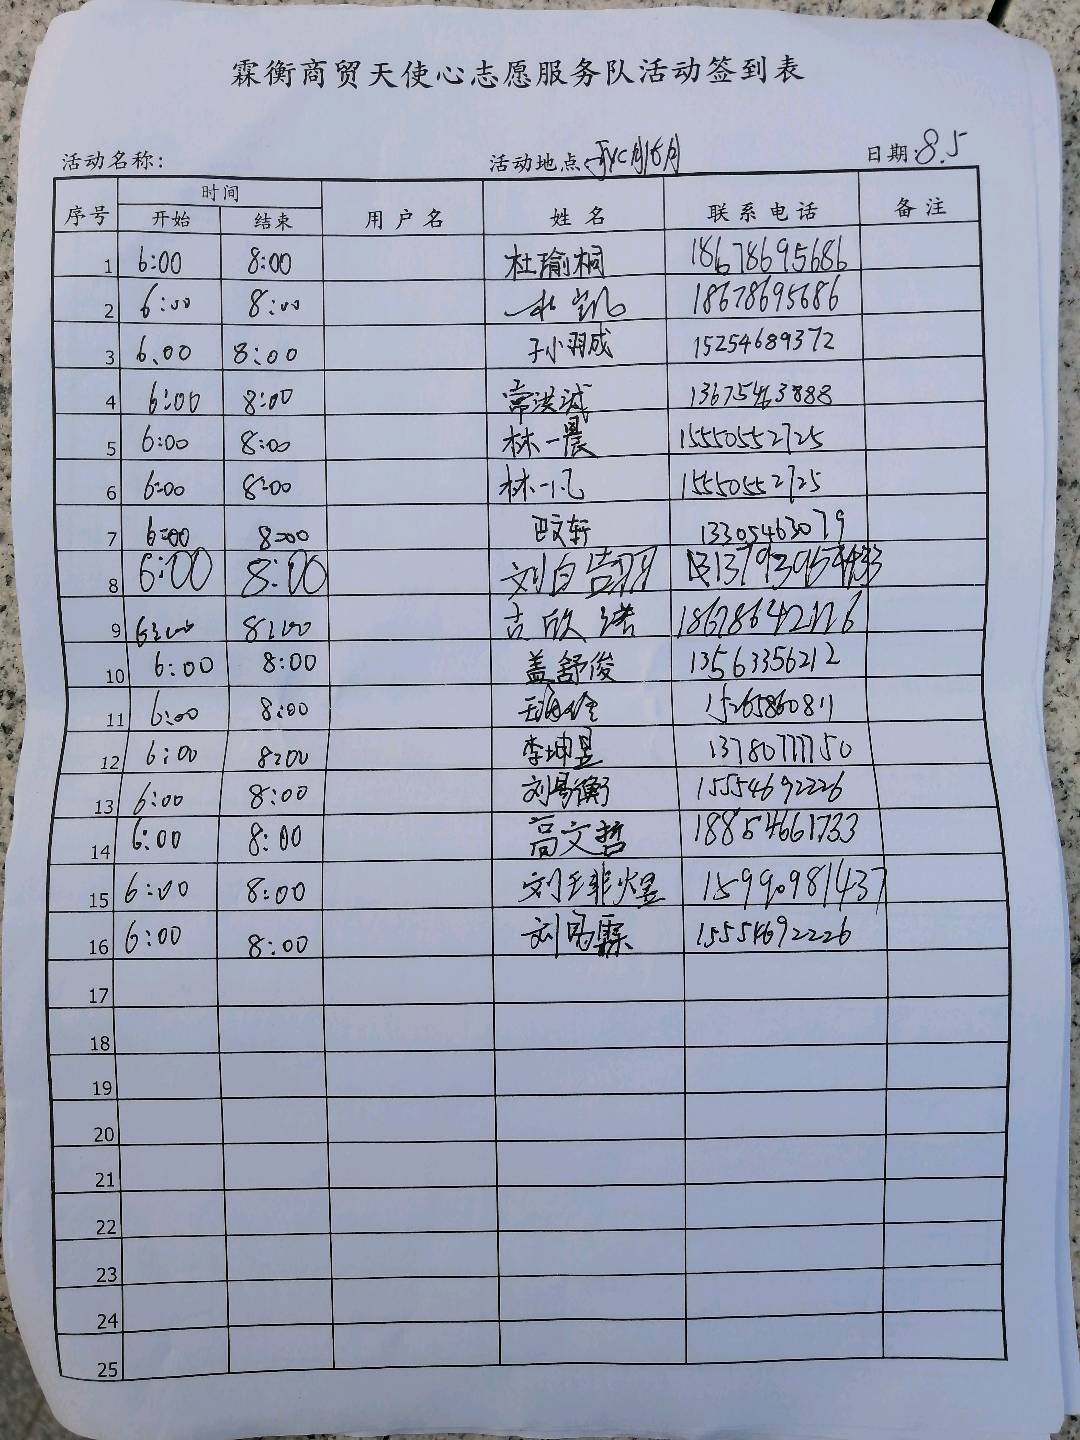 霖衡商贸天使心志愿服务队活动签到表
活动名称: 活动地点: 日期: 8.5
序号 时间 用户名 姓名 联系电话 备注
开始 结束
1 6:00 8:00 杜瑜桐 18678695686
2 6:00 8:00 杜凯 18678695686
3 6:00 8:00 孙羽成 15254689372
4 6:00 8:00 常洪诚 13675463888
5 6:00 8:00 林一晨 15550552725
6 6:00 8:00 林一凡 15550552725
7 6:00 8:00 13305463079
8 6:00 8:00 刘
9 6:00 8:00 吉欣诺 18678642226
10 6:00 8:00 盖舒俊 13563356212
11 6:00 8:00 15265860811
12 6:00 8:00 李坤昱 13780777750
13 6:00 8:00 刘易衡 15554692226
14 6:00 8:00 高文哲 18854661733
15 6:00 8:00 刘王非煜 15990981437
16 6:00 8:00 刘易霖 15554692226
17
18
19
20
21
22
23
24
25